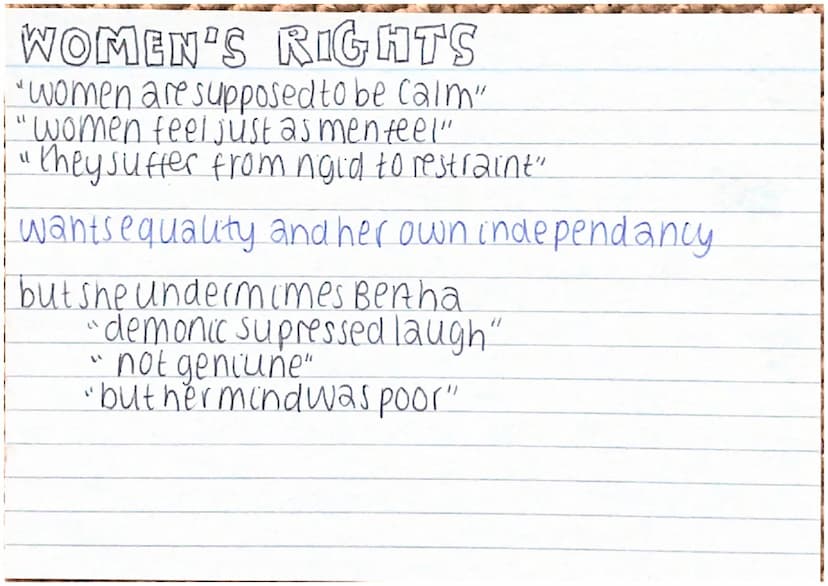 WOMEN'S RIGHTS
"women are supposed to be calm"
"women feel just as men feel"
"they suffer from rigid to restraint"
wants equality and her own independancy
but she undermimes Bertha
"demonic supressed laugh"
"not geniune"
"but her mind was poor"